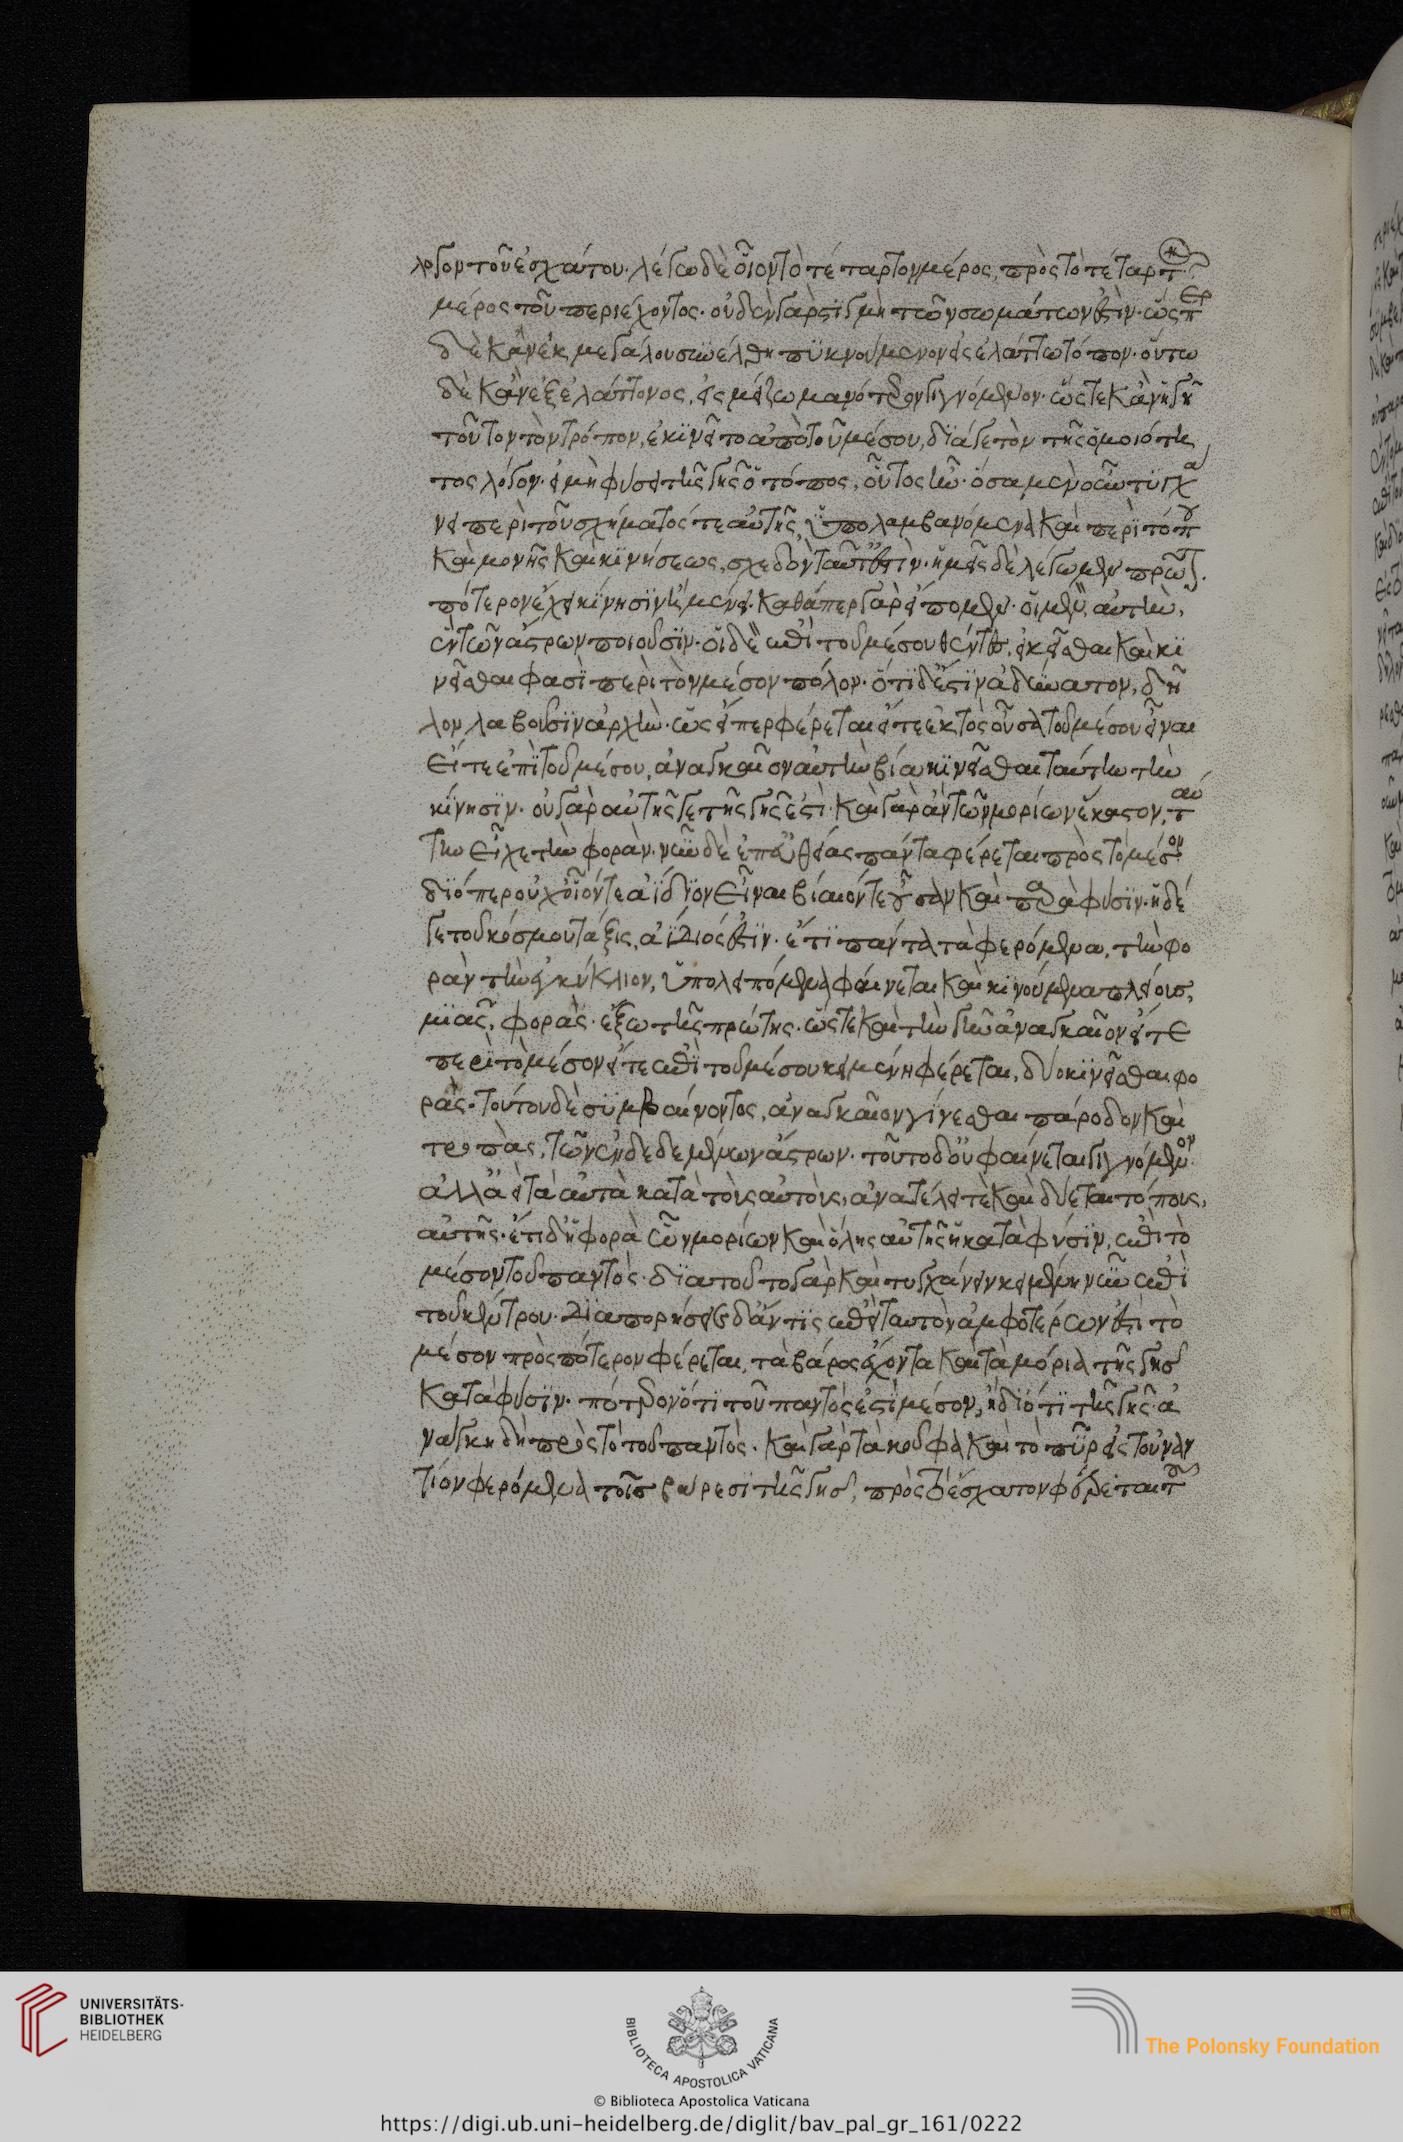 λογον τοῦ ἐσχάτου· λέγω δὲ οἷον τὸ τέταρτον μέρος, πρὸς τὸ τέταρτ
μέρος τοῦ περιέχοντος· οὐδὲν γὰρ στιγμὴ τῶν σωμάτων ἐστίν· ὥσπερ
δὲ κἂν ἐκ μεγάλου συνέλθη πυκνούμενον εἰς ἐλάττω τόπον· οὕτω
δὲ κἂν ἐξ ἐλάττονος, εἰς μείζω μανότερον γιγνόμενον· ὥστε κἂν ἡ γῆ
τοῦτον τὸν τρόπον, ἐκινεῖτο ἀπὸ τοῦ μέσου, διά γε τὸν τῆς ὁμοιότη
τος λόγον· εἰ μὴ φύσει τῆς γῆς ὁ τόπος, οὗτος ἦν· ὅσα μὲν οὖν τυγχά
νει περὶ τοῦ σχήματός τε αὐτῆς, ὑπολαμβανόμενα καὶ περὶ τόπου
καὶ μονῆς καὶ κινήσεως, σχεδὸν ταῦτ' ἐστίν· ἡμεῖς δὲ λέγωμεν πρῶτ
πότερον ἔχει κίνησιν ἢ μένει· καθάπερ γὰρ εἴπομεν· οἱ μὲν, αὐτὴν,
ἓν τῶν ἄστρων ποιοῦσιν· οἱ δὲ ἐπὶ τοῦ μέσου θέντες, εἰλεῖσθαι καὶ κι
νεῖσθαι φασὶ περὶ τὸν μέσον πόλον· ὅτι δέ ἐστιν ἀδύνατον, δῆ
λον λαβοῦσιν ἀρχὴν· ὡς εἴπερ φέρεται εἴτε ἐκτὸς οὖσα τοῦ μέσου εἶναι
εἴτε ἐπὶ τοῦ μέσου, ἀναγκαῖον αὐτὴν βίᾳ κινεῖσθαι ταύτην τὴν
κίνησιν· οὐ γὰρ αὐτῆς γε τῆς γῆς ἐστὶ· καὶ γὰρ ἂν τῶν μορίων ἕκαστον, ταύ
την εἶχε τὴν φορὰν· νῦν δὲ ἐπ' εὐθείας πάντα φέρεται πρὸς τὸ μέσον
διόπερ οὐχ οἷόν τε ἀΐδιον εἶναι βίαιόν τ' οὖσαν καὶ παρὰ φύσιν· ἡ δέ
γε τοῦ κόσμου τάξις, ἀΐδιός ἐστιν· ἔτι πάντα τὰ φερόμενα, τὴν φο
ρὰν τὴν ἐγκύκλιον, ὑπολειπόμενα φαίνεται καὶ κινούμενα πλείους,
μιᾶς, φορὰς· ἔξω τῆς πρώτης· ὥστε καὶ τὴν γῆν ἀναγκαῖον εἴτε
περὶ τὸ μέσον εἴτε ἐπὶ τοῦ μέσου κειμένη φέρεται, δύο κινεῖσθαι φο
ράς· τούτου δὲ συμβαίνοντος, ἀναγκαῖον γίνεσθαι πάροδον καὶ
τροπὰς, τῶν ἐνδεδεμένων ἄστρων· τοῦτο δ' οὐ φαίνεται γιγνόμενον
ἀλλ' ἀεὶ τὰ αὐτὰ κατὰ τοὺς αὐτοὺς, ἀνατέλει τὲ καὶ δύεται τόπους,
αὐτῆς· ἔτι δ' ἡ φορὰ τῶν μορίων καὶ ὅλης αὐτῆς ἡ κατὰ φύσιν, ἐπὶ τὸ
μέσον τοῦ παντὸς· διὰ τοῦτο γὰρ καὶ τυγχάνει κειμένη νῦν ἐπὶ
τοῦ κέντρου· διαπορήσειε δ' ἄν τις ἐπεὶ ταυτὸν ἀμφοτέρων ἐστὶ τὸ
μέσον πρὸς πότερον φέρεται, τὰ βάρος ἔχοντα καὶ τὰ μόρια τῆς γῆς
κατὰ φύσιν· πότερον ὅτι τοῦ παντὸς ἐστὶ μέσον, ἢ διότι τῆς γῆς· ἀ
νάγκη δὴ πρὸς τὸ τοῦ παντὸς· καὶ γὰρ τὰ κοῦφα καὶ τὸ πῦρ εἰς τοὐναν
τίον φερόμενα τοῖς βάρεσι τῆς γῆς, πρὸς τὸ ἔσχατον φέρεται τοῦ
UNIVERSITÄTS-
BIBLIOTHEK
HEIDELBERG
BIBLIOTECA APOSTOLICA VATICANA
© Biblioteca Apostolica Vaticana
The Polonsky Foundation
https://digi.ub.uni-heidelberg.de/diglit/bav_pal_gr_161/0222